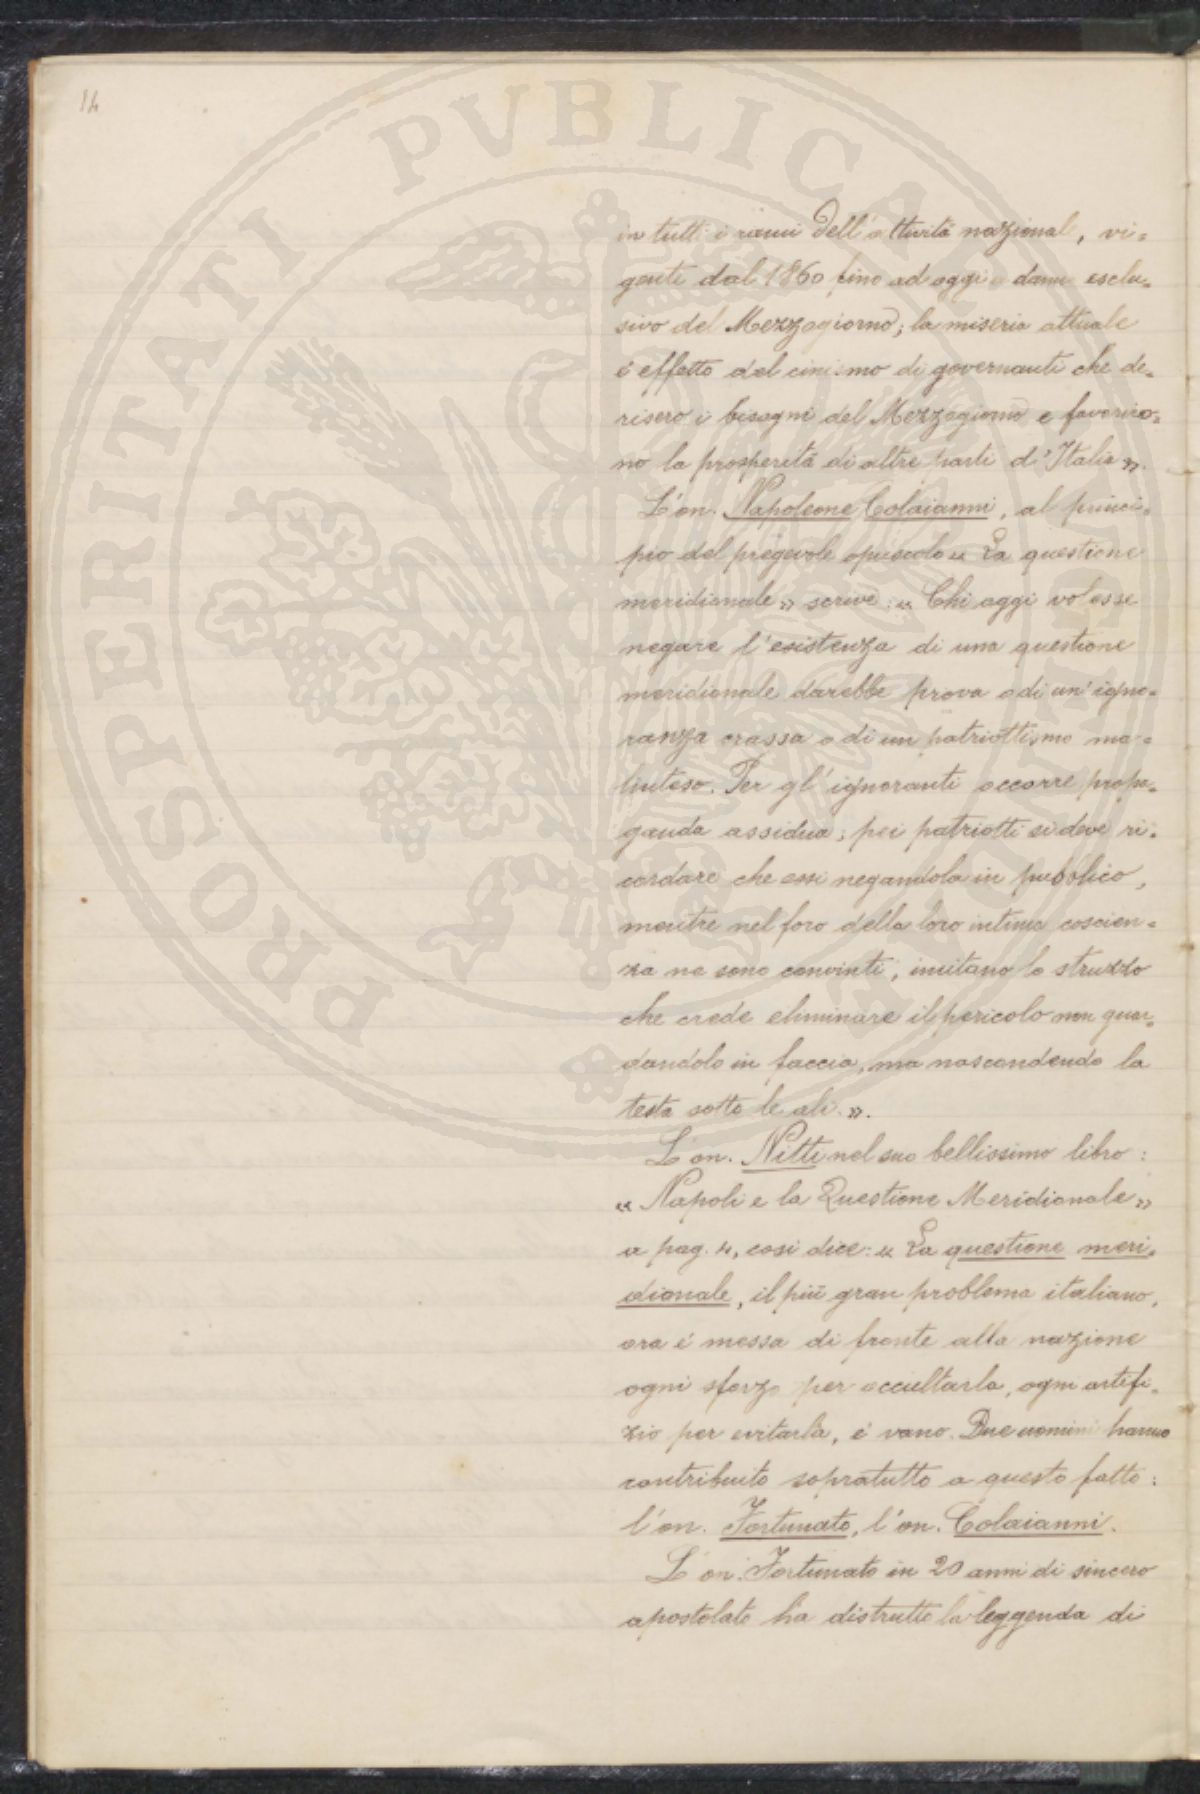 14
in tutti i rami dell'attività nazionale, vi=
gente dal 1860 fino ad oggi a danno esclu=
sivo del Mezzogiorno; la miseria attuale
è effetto del cinismo di governanti che de=
risero i bisogni del Mezzogiorno e favoriro=
no la prosperità di altre parti d'Italia ».
L'on. Napoleone Colaianni, al princi=
pio del pregevole opuscolo « La questione
meridionale » scrive: « Chi oggi volesse
negare l'esistenza di una questione
meridionale darebbe prova o di un'igno=
ranza crassa o di un patriottismo ma=
linteso. Per gl'ignoranti occorre propa=
ganda assidua; pei patriotti si deve ri=
cordare che essi negandola in pubblico,
mentre nel foro della loro intima coscien=
za ne sono convinti, imitano lo struzzo
che crede eliminare il pericolo non guar=
dandolo in faccia, ma nascondendo la
testa sotto le ali. ».
L'on. Nitti nel suo bellissimo libro:
« Napoli e la Questione Meridionale »
a pag. 4, così dice: « La questione meri=
dionale, il più gran problema italiano,
ora è messa di fronte alla nazione
ogni sforzo per occultarla, ogni artifi=
zio per evitarla, è vano. Due uomini hanno
contribuito sopratutto a questo fatto:
l'on. Fortunato, l'on. Colaianni.
L'on. Fortunato in 20 anni di sincero
apostolato ha distrutto la leggenda di
PROSPERITATI PVBLICAE AVGENDAE